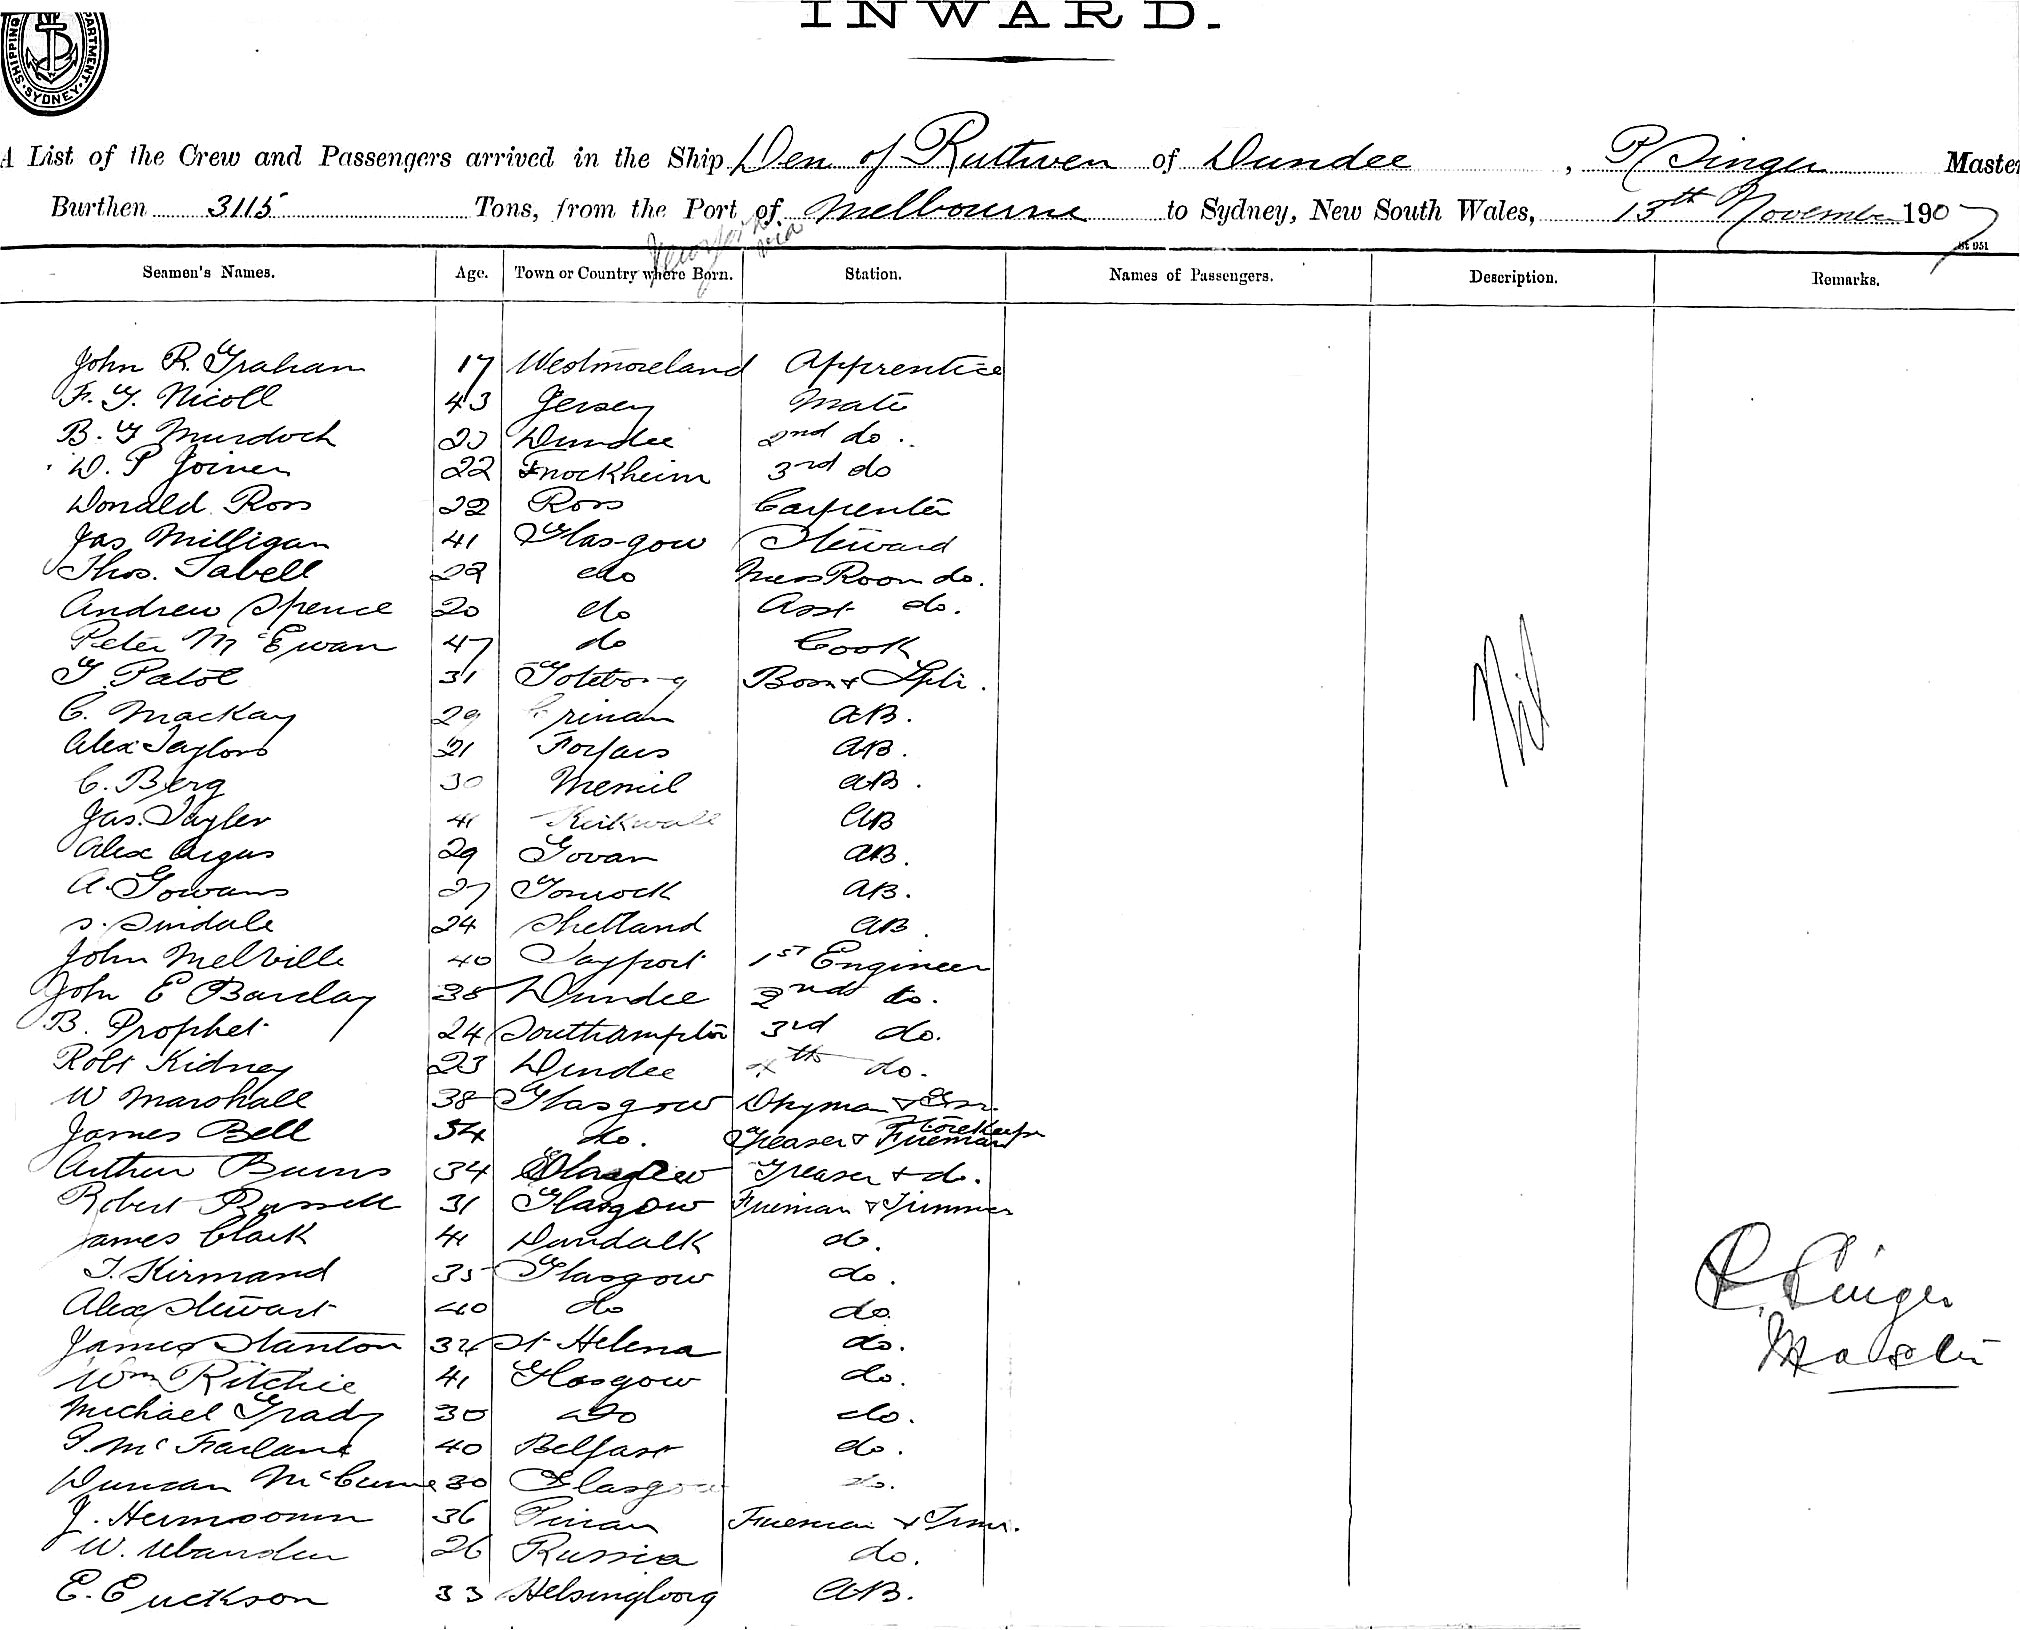 INWARD.
SHIPPING DEPARTMENT. SYDNEY
A List of the Crew and Passengers arrived in the Ship Den of Ruthven of Dundee, P Singer Master
Burthen 3115 Tons, from the Port of Melbourne to Sydney, New South Wales, 13th November 1907
New York via
Seamen's Names. Age. Town or Country where Born. Station. Names of Passengers. Description. Remarks.
John R. Graham 17 Westmoreland Apprentice
F. G. Nicoll 43 Jersey Mate
B. G Murdoch 23 Dundee 2nd do.
W. P Joiner 22 Friockheim 3rd do
Donald Ross 22 Ross Carpenter
Jas Milligan 41 Glasgow Steward
Thos. Tabell 29 do Mess Room do.
Andrew Spence 20 do Asst do.
Peter McEwan 47 do Cook
31 Goteborg Bosn & Lptr.
C. Mackay 29 Crinan AB.
Alex Taylor 21 Forfar AB.
C. Berg 30 Memel AB.
Jas. Tayler 41 Kirkwall AB
Alex Angus 29 Govan AB.
A. Gowans 27 Gourock AB.
S. Sindale 24 Shetland AB.
John Melville 40 Tayport 1st Engineer
John E Barclay 38 Dundee 2nd do.
B. Prophet 24 Southampton 3rd do.
Robt Kidney 23 Dundee 4th do.
W Marshall 38 Glasgow Dkyman &
Storekeeper
James Bell 54 do. Greaser & Fireman
Arthur Burns 34 Glasgow Greaser & do.
Robert Russell 31 Glasgow Fireman & Trimmer
James Clark 41 Dundalk do.
T. Kirmand 35 Glasgow do.
Alex Stewart 40 do do.
James Stanton 32 St Helena do.
Wm Ritchie 41 Glasgow do.
Michael Grady 30 do do.
P. McFarlane 40 Belfast do.
Duncan 30 Glasgow do.
J. 36 Fireman & Trmr.
W. 26 Russia do.
E. Erickson 33 Helsingborg AB.
Nil
P. Singer
Master